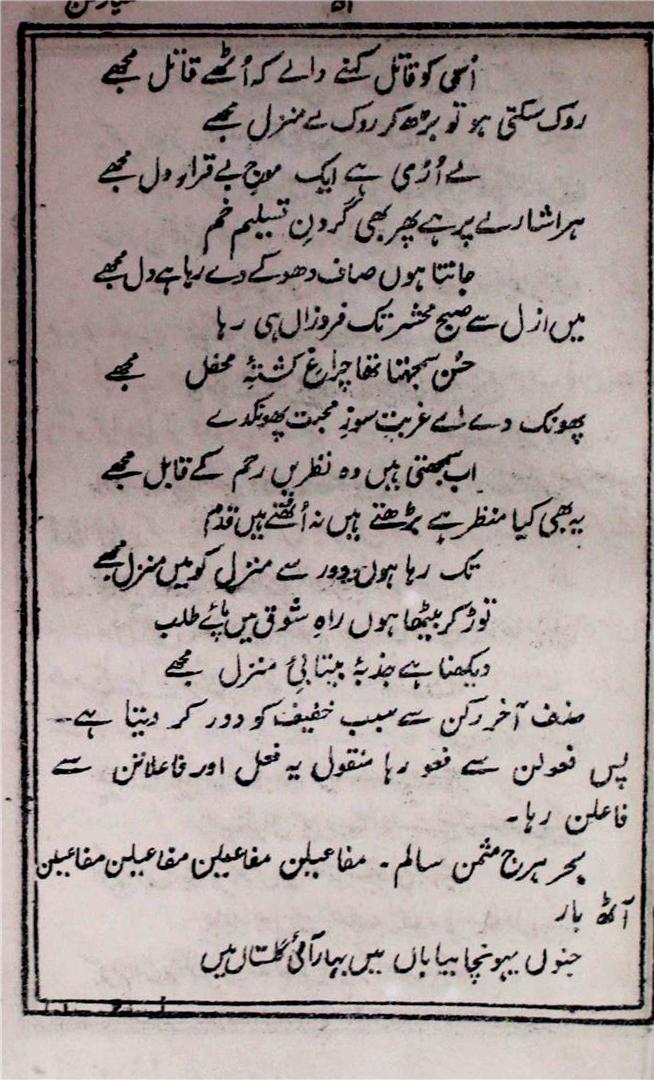 ۵۱
اُسی کو قاتل کہنے والے کہ اُٹھے قاتل مجھے
روک سکتی ہو تو بڑھ کر روک لے منزل مجھے
لے اُڑی ہے ایک موجِ بے قرارِ دل مجھے
ہر اشارے پر ہے پھر بھی گردنِ تسلیم خم
جانتا ہوں صاف دھوکے دے رہا ہے دل مجھے
میں ازل سے صبح محشر تک فروزاں ہی رہا
حُسن سمجھتا تھا چراغِ کشتۂ محفل مجھے
پھونک دے اے غربتِ سوزِ محبت پھونکدے
اب سمجھتی ہیں وہ نظریں رحم کے قابل مجھے
یہ بھی کیا منظر ہے بڑھتے ہیں نہ اُٹھتے ہیں قدم
تک رہا ہوں دور سے منزل کو میں منزل مجھے
توڑ کر بیٹھا ہوں راہِ شوق میں پائے طلب
دیکھنا ہے جذبۂ بیتابیٔ منزل مجھے
حذف آخر رکن سے سبب خفیف کو دور کر دیتا ہے۔
پس فعولن سے فعو رہا منقول بہ فعل اور فاعلاتن سے
فاعلن رہا۔
بحر ہزج مثمن سالم۔ مفاعیلن مفاعیلن مفاعیلن مفاعیلن
آٹھ بار
جنوں پہونچا بیاباں میں بہار آئی گلستاں میں